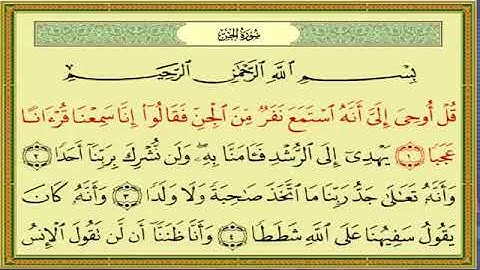 سُورَةُ الجِنّ
بِسْمِ ٱللَّهِ ٱلرَّحْمَٰنِ ٱلرَّحِيمِ
قُلْ أُوحِىَ إِلَىَّ أَنَّهُ ٱسْتَمَعَ نَفَرٌ مِّنَ ٱلْجِنِّ فَقَالُوٓا۟ إِنَّا سَمِعْنَا قُرْءَانًا
عَجَبًا ١ يَهْدِىٓ إِلَى ٱلرُّشْدِ فَـَٔامَنَّا بِهِۦ ۖ وَلَن نُّشْرِكَ بِرَبِّنَآ أَحَدًا ٢
وَأَنَّهُۥ تَعَٰلَىٰ جَدُّ رَبِّنَا مَا ٱتَّخَذَ صَٰحِبَةً وَلَا وَلَدًا ٣ وَأَنَّهُۥ كَانَ
يَقُولُ سَفِيهُنَا عَلَى ٱللَّهِ شَطَطًا ٤ وَأَنَّا ظَنَنَّآ أَن لَّن تَقُولَ ٱلْإِنسُ